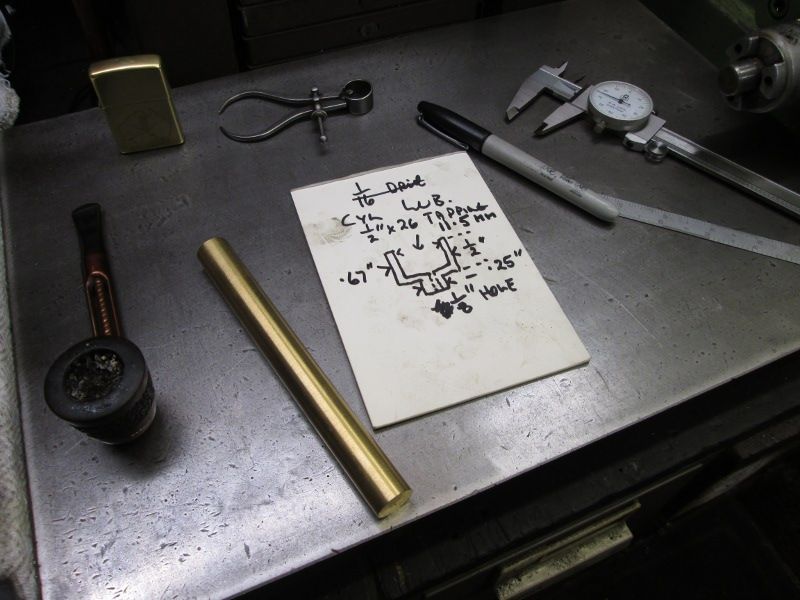 1/16 Drive
CYL LUB.
1/2" x 26 TAPPING
11.5 MM
1/2"
.67"
.25"
1/8" HOLE